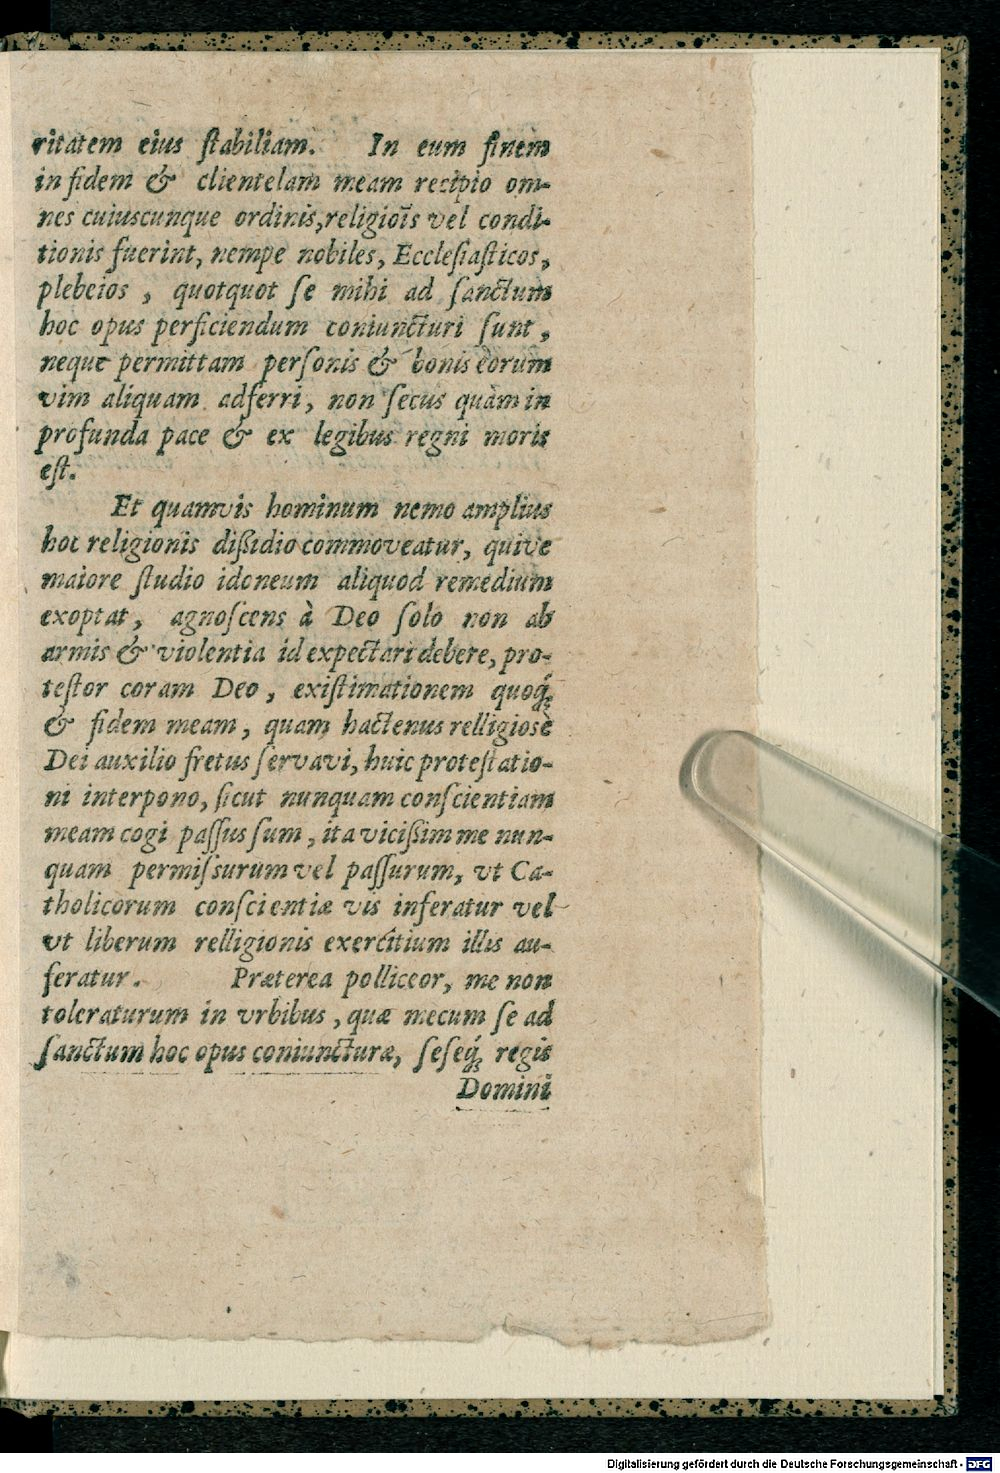 ritatem eius ſtabiliam. In eum finem
in fidem & clientelam meam recipio om-
nes cuiuscunque ordinis, religiois̄ vel condi-
tionis fuerint, nempe nobiles, Eccleſiaſticos,
plebeios, quotquot ſe mihi ad ſanctum
hoc opus perficiendum coniuncturi ſunt,
neque permittam perſonis & bonis eorum
vim aliquam adferri, non ſecus quàm in
profunda pace & ex legibus regni moris
eſt.
Et quamvis hominum nemo amplius
hoc religionis diſsidio commoveatur, quive
maiore ſtudio idoneum aliquod remedium
exoptat, agnoſcens à Deo ſolo non ab
armis & violentia id expectari debere, pro-
teſtor coram Deo, exiſtimationem quoq́;
& fidem meam, quam hactenus relligiosè
Dei auxilio fretus ſervavi, huic proteſtatio-
ni interpono, ſicut nunquam conſcientiam
meam cogi paſſus ſum, ita viciſsim me nun-
quam permiſsurum vel paſſurum, vt Ca-
tholicorum conſcientiæ vis inferatur vel
vt liberum relligionis exercitium illis au-
feratur. Præterea polliceor, me non
toleraturum in vrbibus, quæ mecum ſe ad
ſanctum hoc opus coniuncturæ, ſeſeq́; regis
Domini
Digitalisierung gefördert durch die Deutsche Forschungsgemeinschaft - DFG